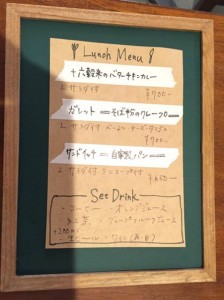 Lunch Menu
十六穀米のバターチキンカレー
サラダ付 ¥900-
ガレット=そば粉のクレープ
サラダ付 ベーコン・チーズ・
サンドイッチ=自家製パン
サラダ付 ミニスープ付
Set Drink
・コーヒー ・オレンジジュース
・紅茶 ・グレープフルーツジュース